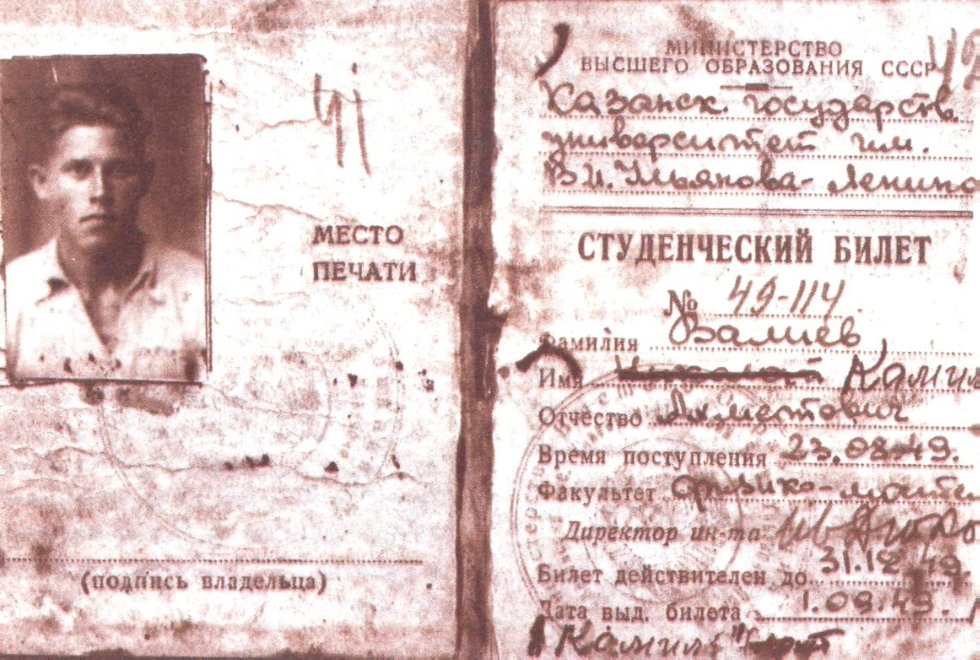 МЕСТО
ПЕЧАТИ
(подпись владельца)
МИНИСТЕРСТВО
ВЫСШЕГО ОБРАЗОВАНИЯ СССР
Казанск. государств.
университет им.
В.И. Ульянова-Ленина
СТУДЕНЧЕСКИЙ БИЛЕТ
№ 49-114
Фамилия Валиев
Имя Камил
Отчество Ахметович
Время поступления 23.08.49.
Факультет Физико-мате
Директор ин-та
Билет действителен до 31.12.49.
Дата выд. билета 1.09.49.
Камиль